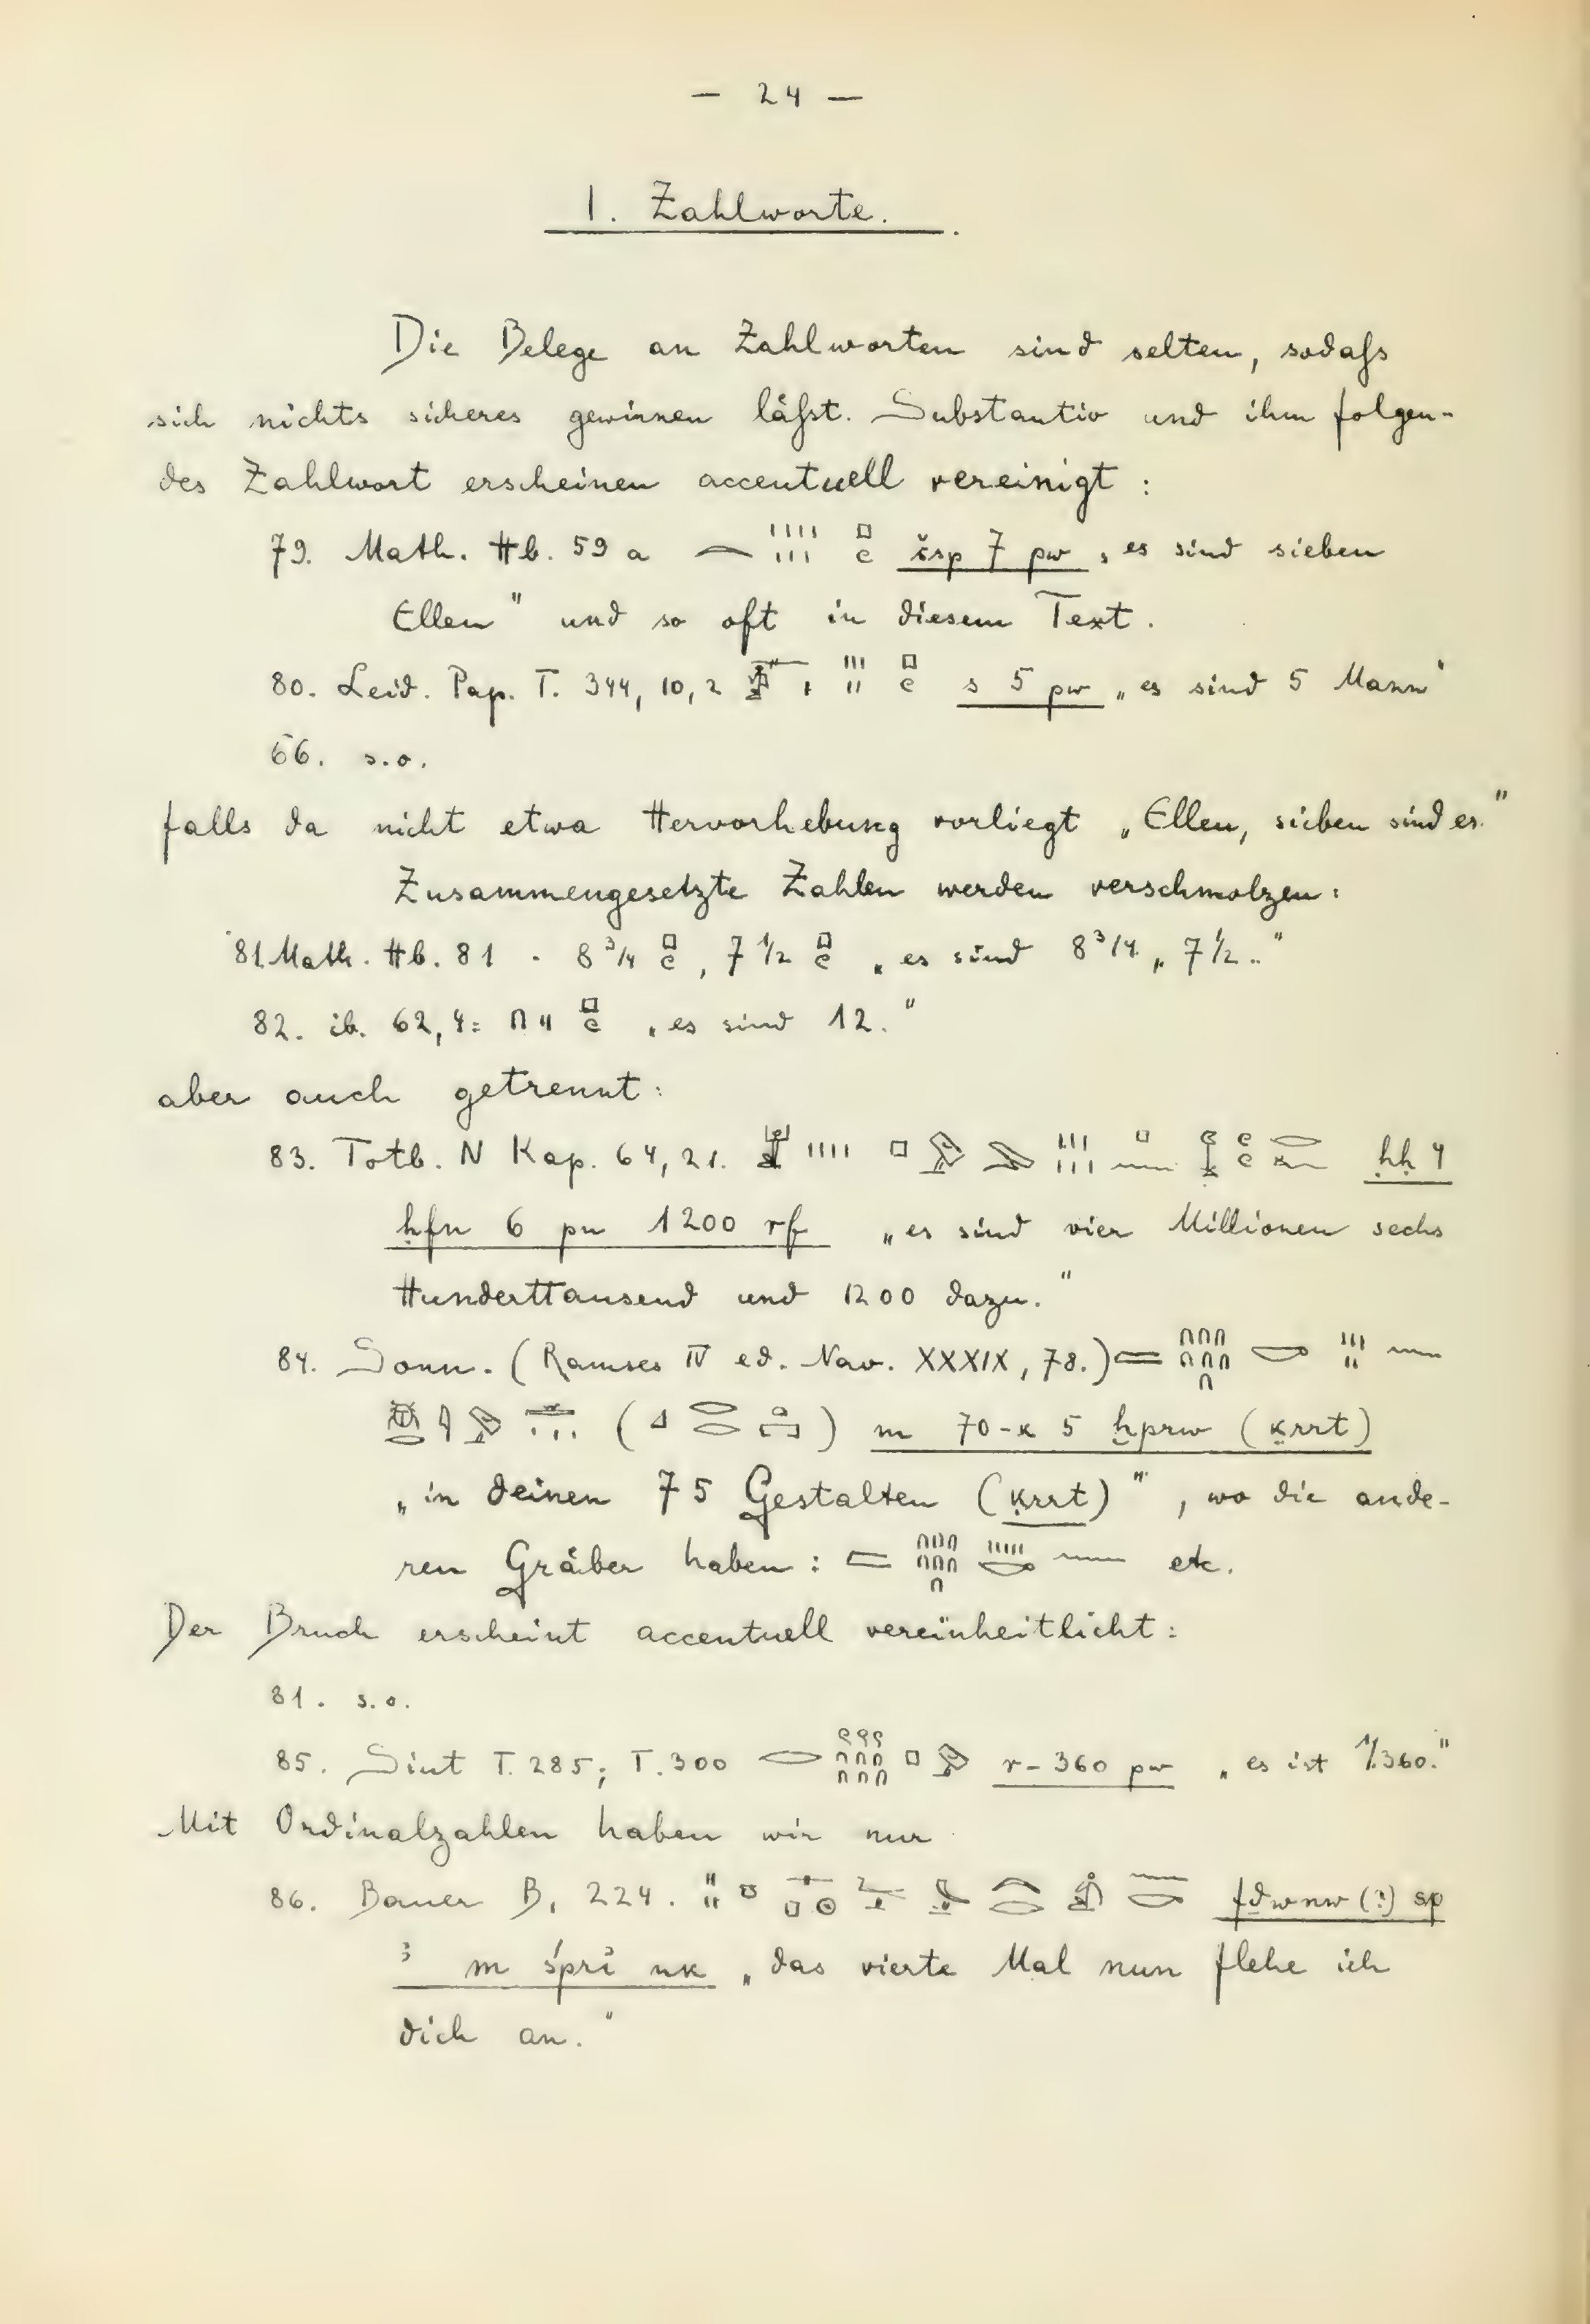 — 24 —
1. Zahlworte.
Die Belege an Zahlworten sind selten, sodaſs
sich nichts sicheres gewinnen läſst. Substantiv und ihm folgen-
des Zahlwort erscheinen accentuell vereinigt :
79. Math. Hb. 59 a šsp 7 pw „es sind sieben
Ellen" und so oft in diesem Text.
80. Leid. Pap. T. 344, 10, 2 s 5 pw „es sind 5 Mann"
66. s.o.
falls da nicht etwa Hervorhebung vorliegt „Ellen, sieben sind es."
Zusammengesetzte Zahlen werden verschmolzen:
81. Math. Hb. 81 . 8 3/4 , 7 1/2 „es sind 8 3/4 „ 7 1/2."
82. ib. 62, 4: „es sind 12."
aber auch getrennt:
83. Totb. N Kap. 64, 21. ḥḥ 4
ḥfn 6 pn 1200 rf „es sind vier Millionen sechs
Hunderttausend und 1200 dazu."
84. Sonn. (Ramses IV ed. Nav. XXXIX, 78.)
( ) m 70-k 5 ḫprw (ḳrrt)
„in deinen 75 Gestalten (ḳrrt)", wo die ande-
ren Gräber haben: etc.
Der Bruch erscheint accentuell vereinheitlicht:
81. s.o.
85. Siut T. 285; T. 300 r-360 pw „es ist 1/360."
Mit Ordinalzahlen haben wir nur
86. Bauer B, 224. fdwnw (?) sp
3 m śpri nk „das vierte Mal nun flehe ich
dich an."